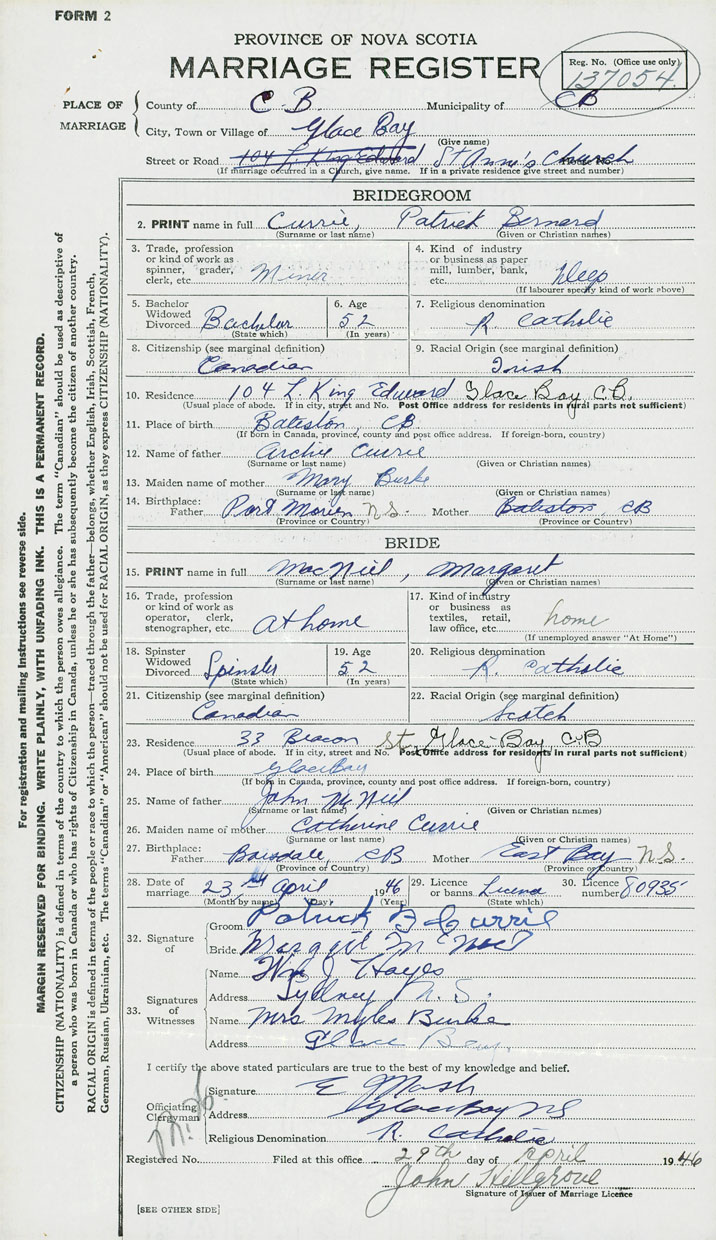 FORM 2
PROVINCE OF NOVA SCOTIA
MARRIAGE REGISTER
Reg. No. (Office use only)
137054
PLACE OF MARRIAGE
County of C. B. Municipality of CB
City, Town or Village of Glace Bay
(Give name)
Street or Road 104 L. King Edward St Anne's Church
(If marriage occurred in a Church, give name. If in a private residence give street and number)
BRIDEGROOM
2. PRINT name in full Currie, Patrick Bernard
(Surname or last name) (Given or Christian names)
3. Trade, profession or kind of work as spinner, grader, clerk, etc. Miner
4. Kind of industry or business as paper mill, lumber, bank, etc.
(If labourer specify kind of work above)
5. Bachelor Widowed Divorced Bachelor
(State which)
6. Age 52
(In years)
7. Religious denomination R. Catholic
8. Citizenship (see marginal definition) Canadian
9. Racial Origin (see marginal definition) Irish
10. Residence 104 L. King Edward Glace Bay, C.B.
(Usual place of abode. If in city, street and No. Post Office address for residents in rural parts not sufficient)
11. Place of birth Bateston, CB
(If born in Canada, province, county and post office address. If foreign-born, country)
12. Name of father Archie Currie
(Surname or last name) (Given or Christian names)
13. Maiden name of mother Mary Burke
(Surname or last name) (Given or Christian names)
14. Birthplace: Father Port Morien N.S. Mother Bateston, CB
(Province or Country) (Province or Country)
BRIDE
15. PRINT name in full MacNiel, Margaret
(Surname or last name) (Given or Christian names)
16. Trade, profession or kind of work as operator, clerk, stenographer, etc. At home
17. Kind of industry or business as textiles, retail, law office, etc. home
(If unemployed answer "At Home")
18. Spinster Widowed Divorced Spinster
(State which)
19. Age 52
(In years)
20. Religious denomination R. Catholic
21. Citizenship (see marginal definition) Canadian
22. Racial Origin (see marginal definition) Scotch
23. Residence 33 Beacon St, Glace Bay, C.B
(Usual place of abode. If in city, street and No. Post Office address for residents in rural parts not sufficient)
24. Place of birth Glace Bay
(If born in Canada, province, county and post office address. If foreign-born, country)
25. Name of father John McNiel
(Surname or last name) (Given or Christian names)
26. Maiden name of mother Catherine Currie
(Surname or last name) (Given or Christian names)
27. Birthplace: Father Boisdale, CB Mother East Bay N.S.
(Province or Country) (Province or Country)
28. Date of marriage 23 April 1946
(Month by name) (Day) (Year)
29. Licence or banns Licence
(State which)
30. Licence number 80935
32. Signature of
Groom Patrick B Currie
Bride Margaret McNeil
33. Signatures of Witnesses
Name Wm J. Hayes
Address Sydney N.S.
Name Mrs Myles Burke
Address Glace Bay.
I certify the above stated particulars are true to the best of my knowledge and belief.
Officiating Clergyman
Signature
Address Glace Bay NS
Religious Denomination R. Catholic
Registered No. Filed at this office 29th day of April 1946
John Hillgrove
Signature of Issuer of Marriage Licence
[SEE OTHER SIDE]
For registration and mailing instructions see reverse side.
MARGIN RESERVED FOR BINDING. WRITE PLAINLY, WITH UNFADING INK. THIS IS A PERMANENT RECORD.
CITIZENSHIP (NATIONALITY) is defined in terms of the country to which the person owes allegiance. The term "Canadian" should be used as descriptive of
a person who was born in Canada or who has rights of Citizenship in Canada, unless he or she has subsequently become the citizen of another country.
RACIAL ORIGIN is defined in terms of the people or race to which the person—traced through the father—belongs, whether English, Irish, Scottish, French,
German, Russian, Ukrainian, etc. The terms "Canadian" or "American" should not be used for RACIAL ORIGIN, as they express CITIZENSHIP (NATIONALITY).